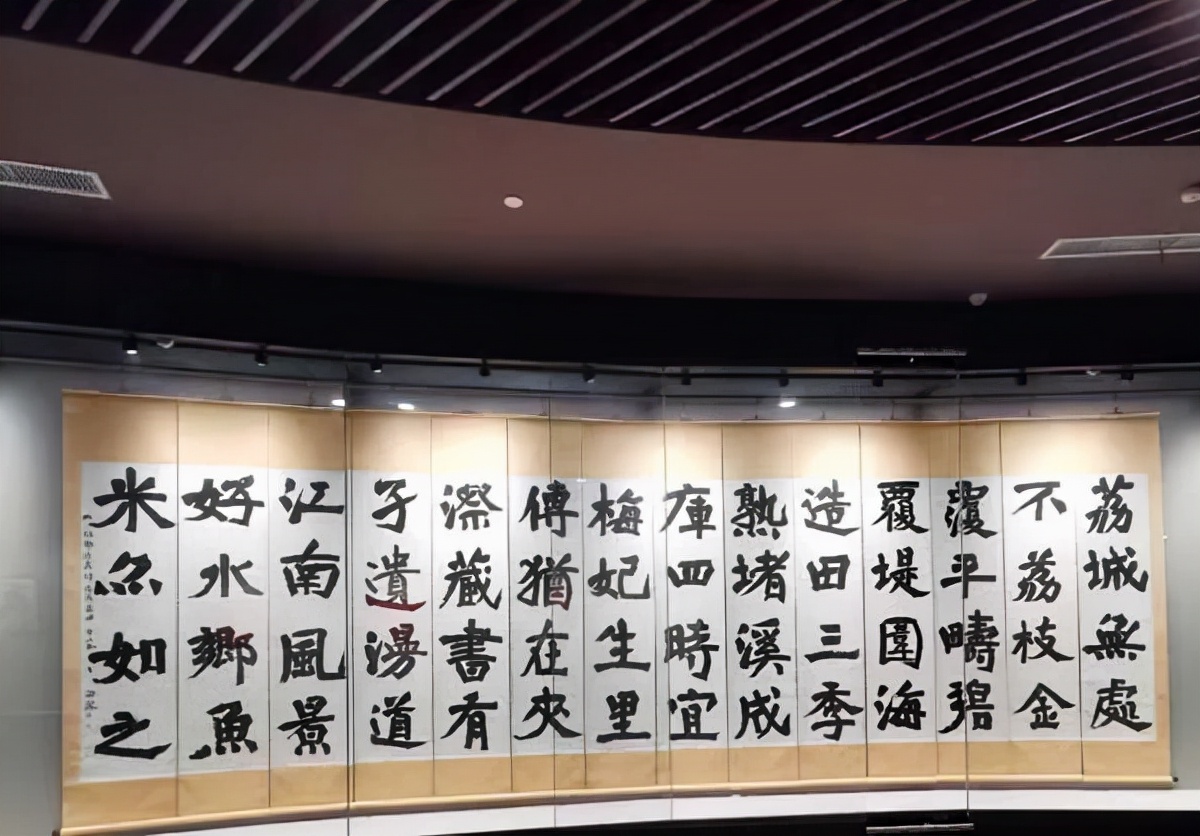 荔城無處
不荔枝金
覆平疇碧
覆堤圍海
造田三季
熟堵溪成
庫四時宜
梅妃生里
傳猶在夾
漈藏書有
孑遺漫道
江南風景
好水鄉魚
米亦如之